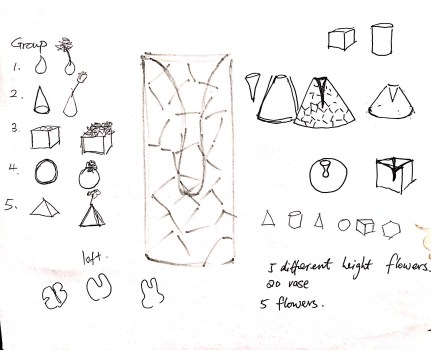 Group
1.
2.
3.
4.
5.
loft.
5 different height flowers.
20 vase
5 flowers.